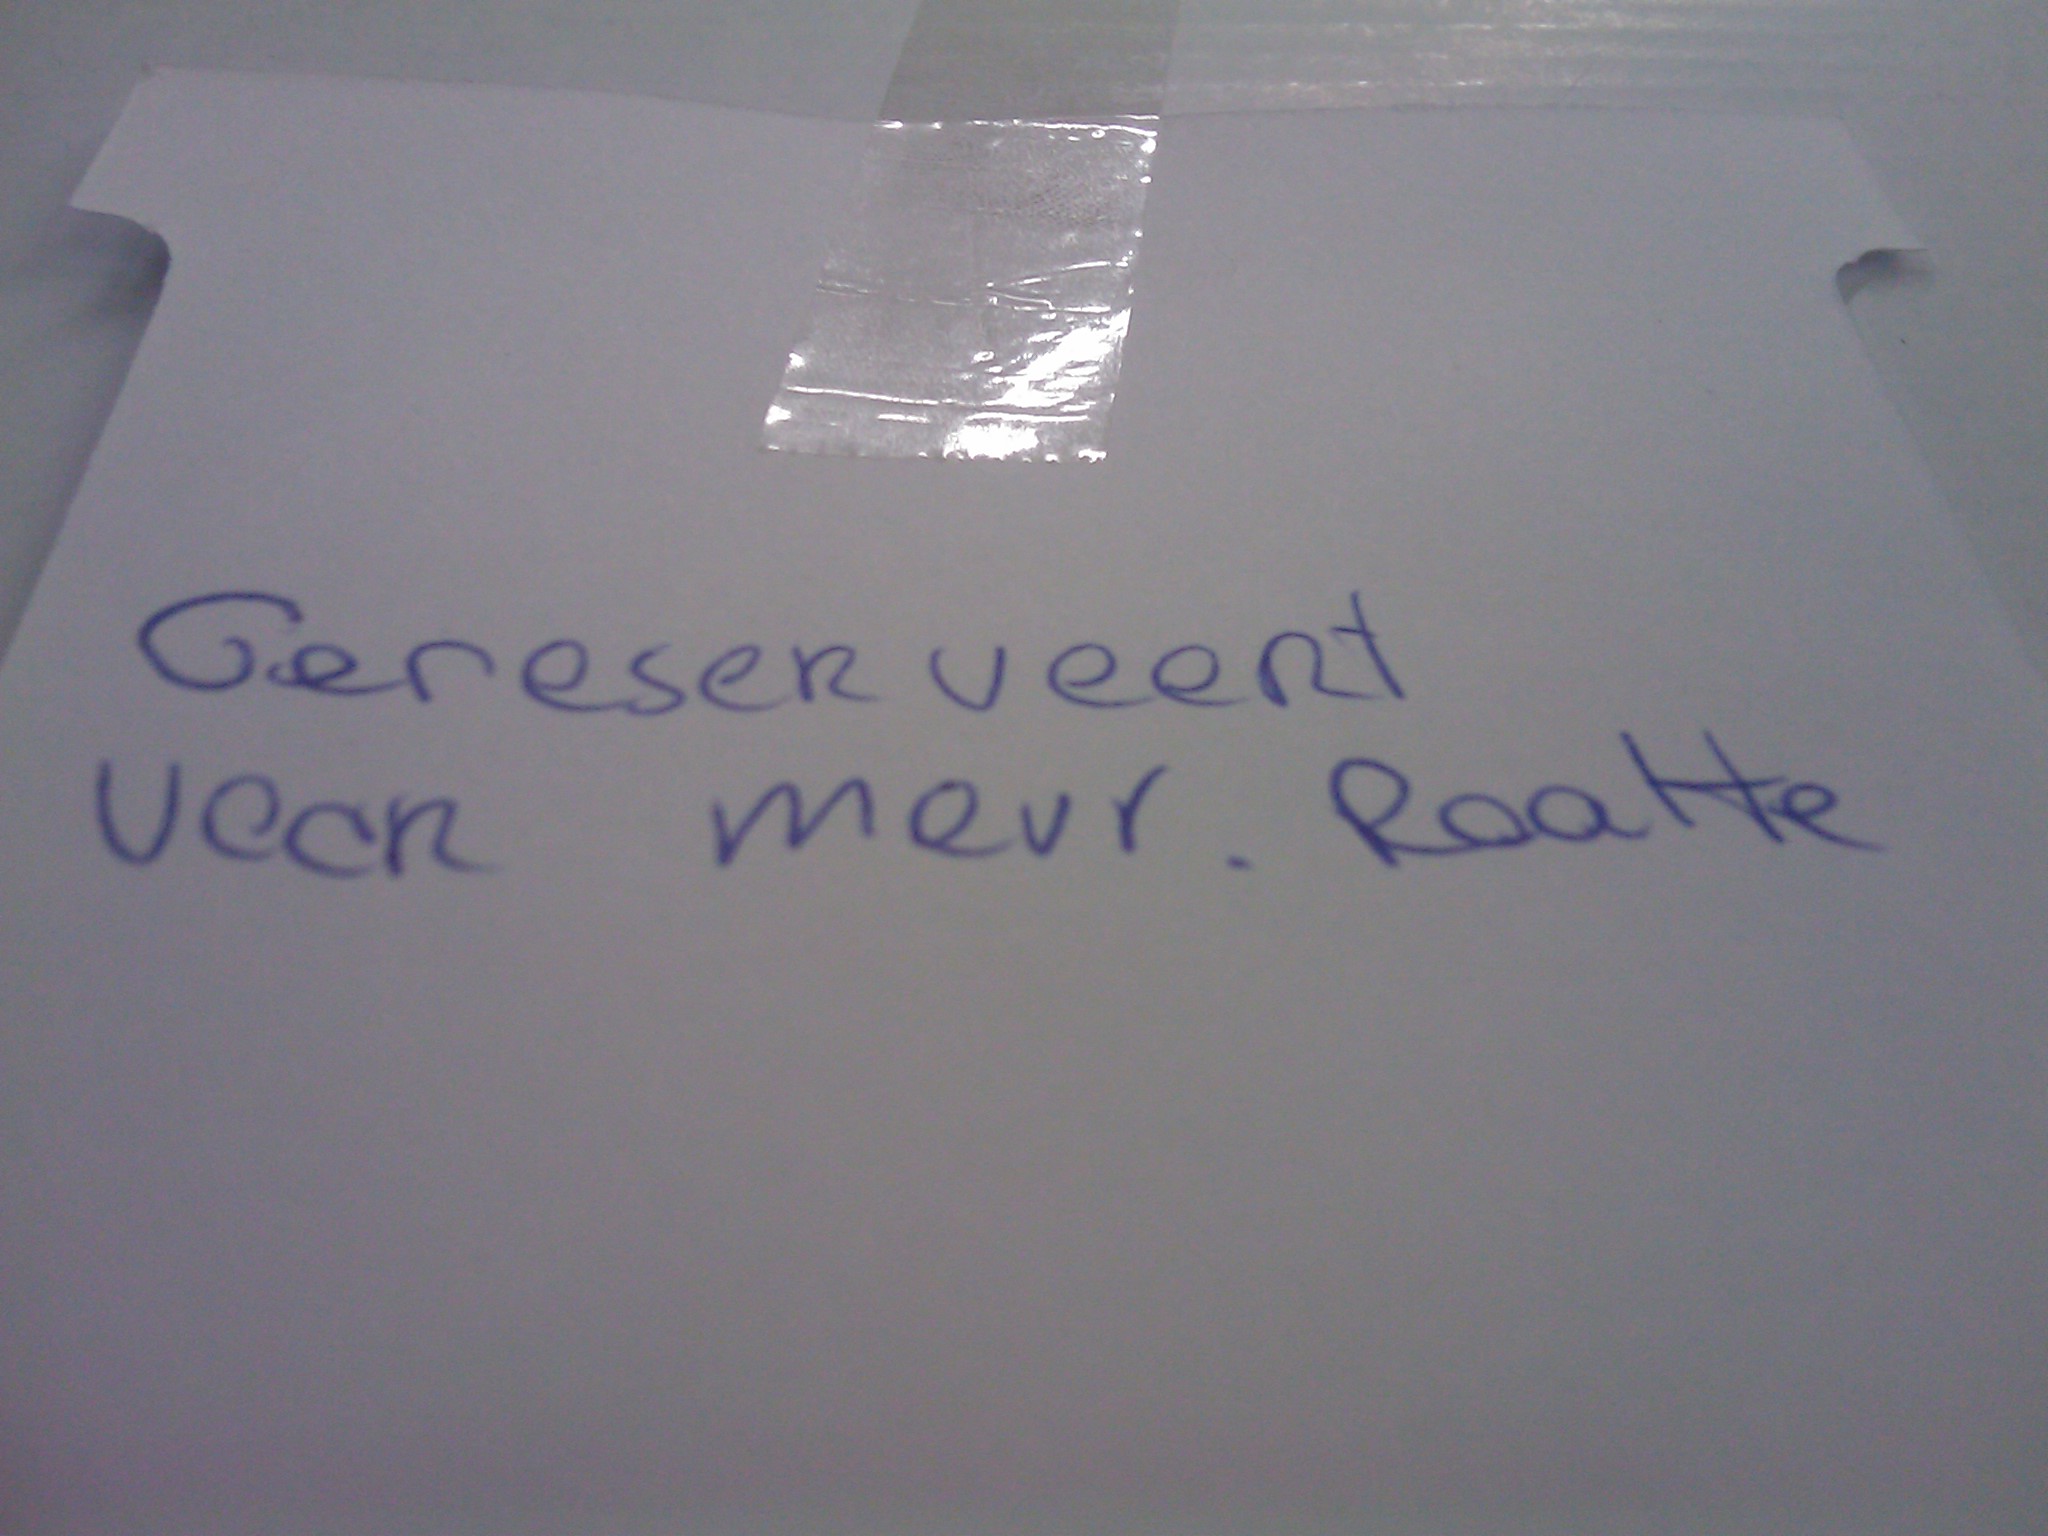 Gereserveert
veer mevr. Raatte